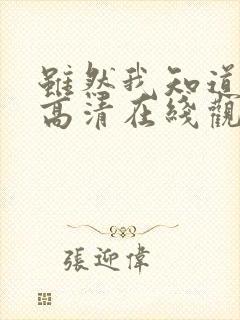 雖然我知道
高清在綫觀
張迎偉